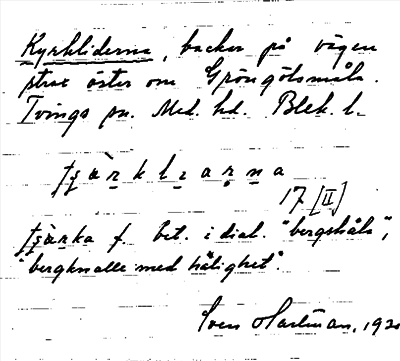 Kyrkliderna, backar på vägen
strax öster om Gröngölsmåla.
Tvings sn. Med. hd. Blek. l.
17 [II]
f. bet. i dial. "bergskåla",
"bergknalle med hålighet".
Sven Hartman, 192